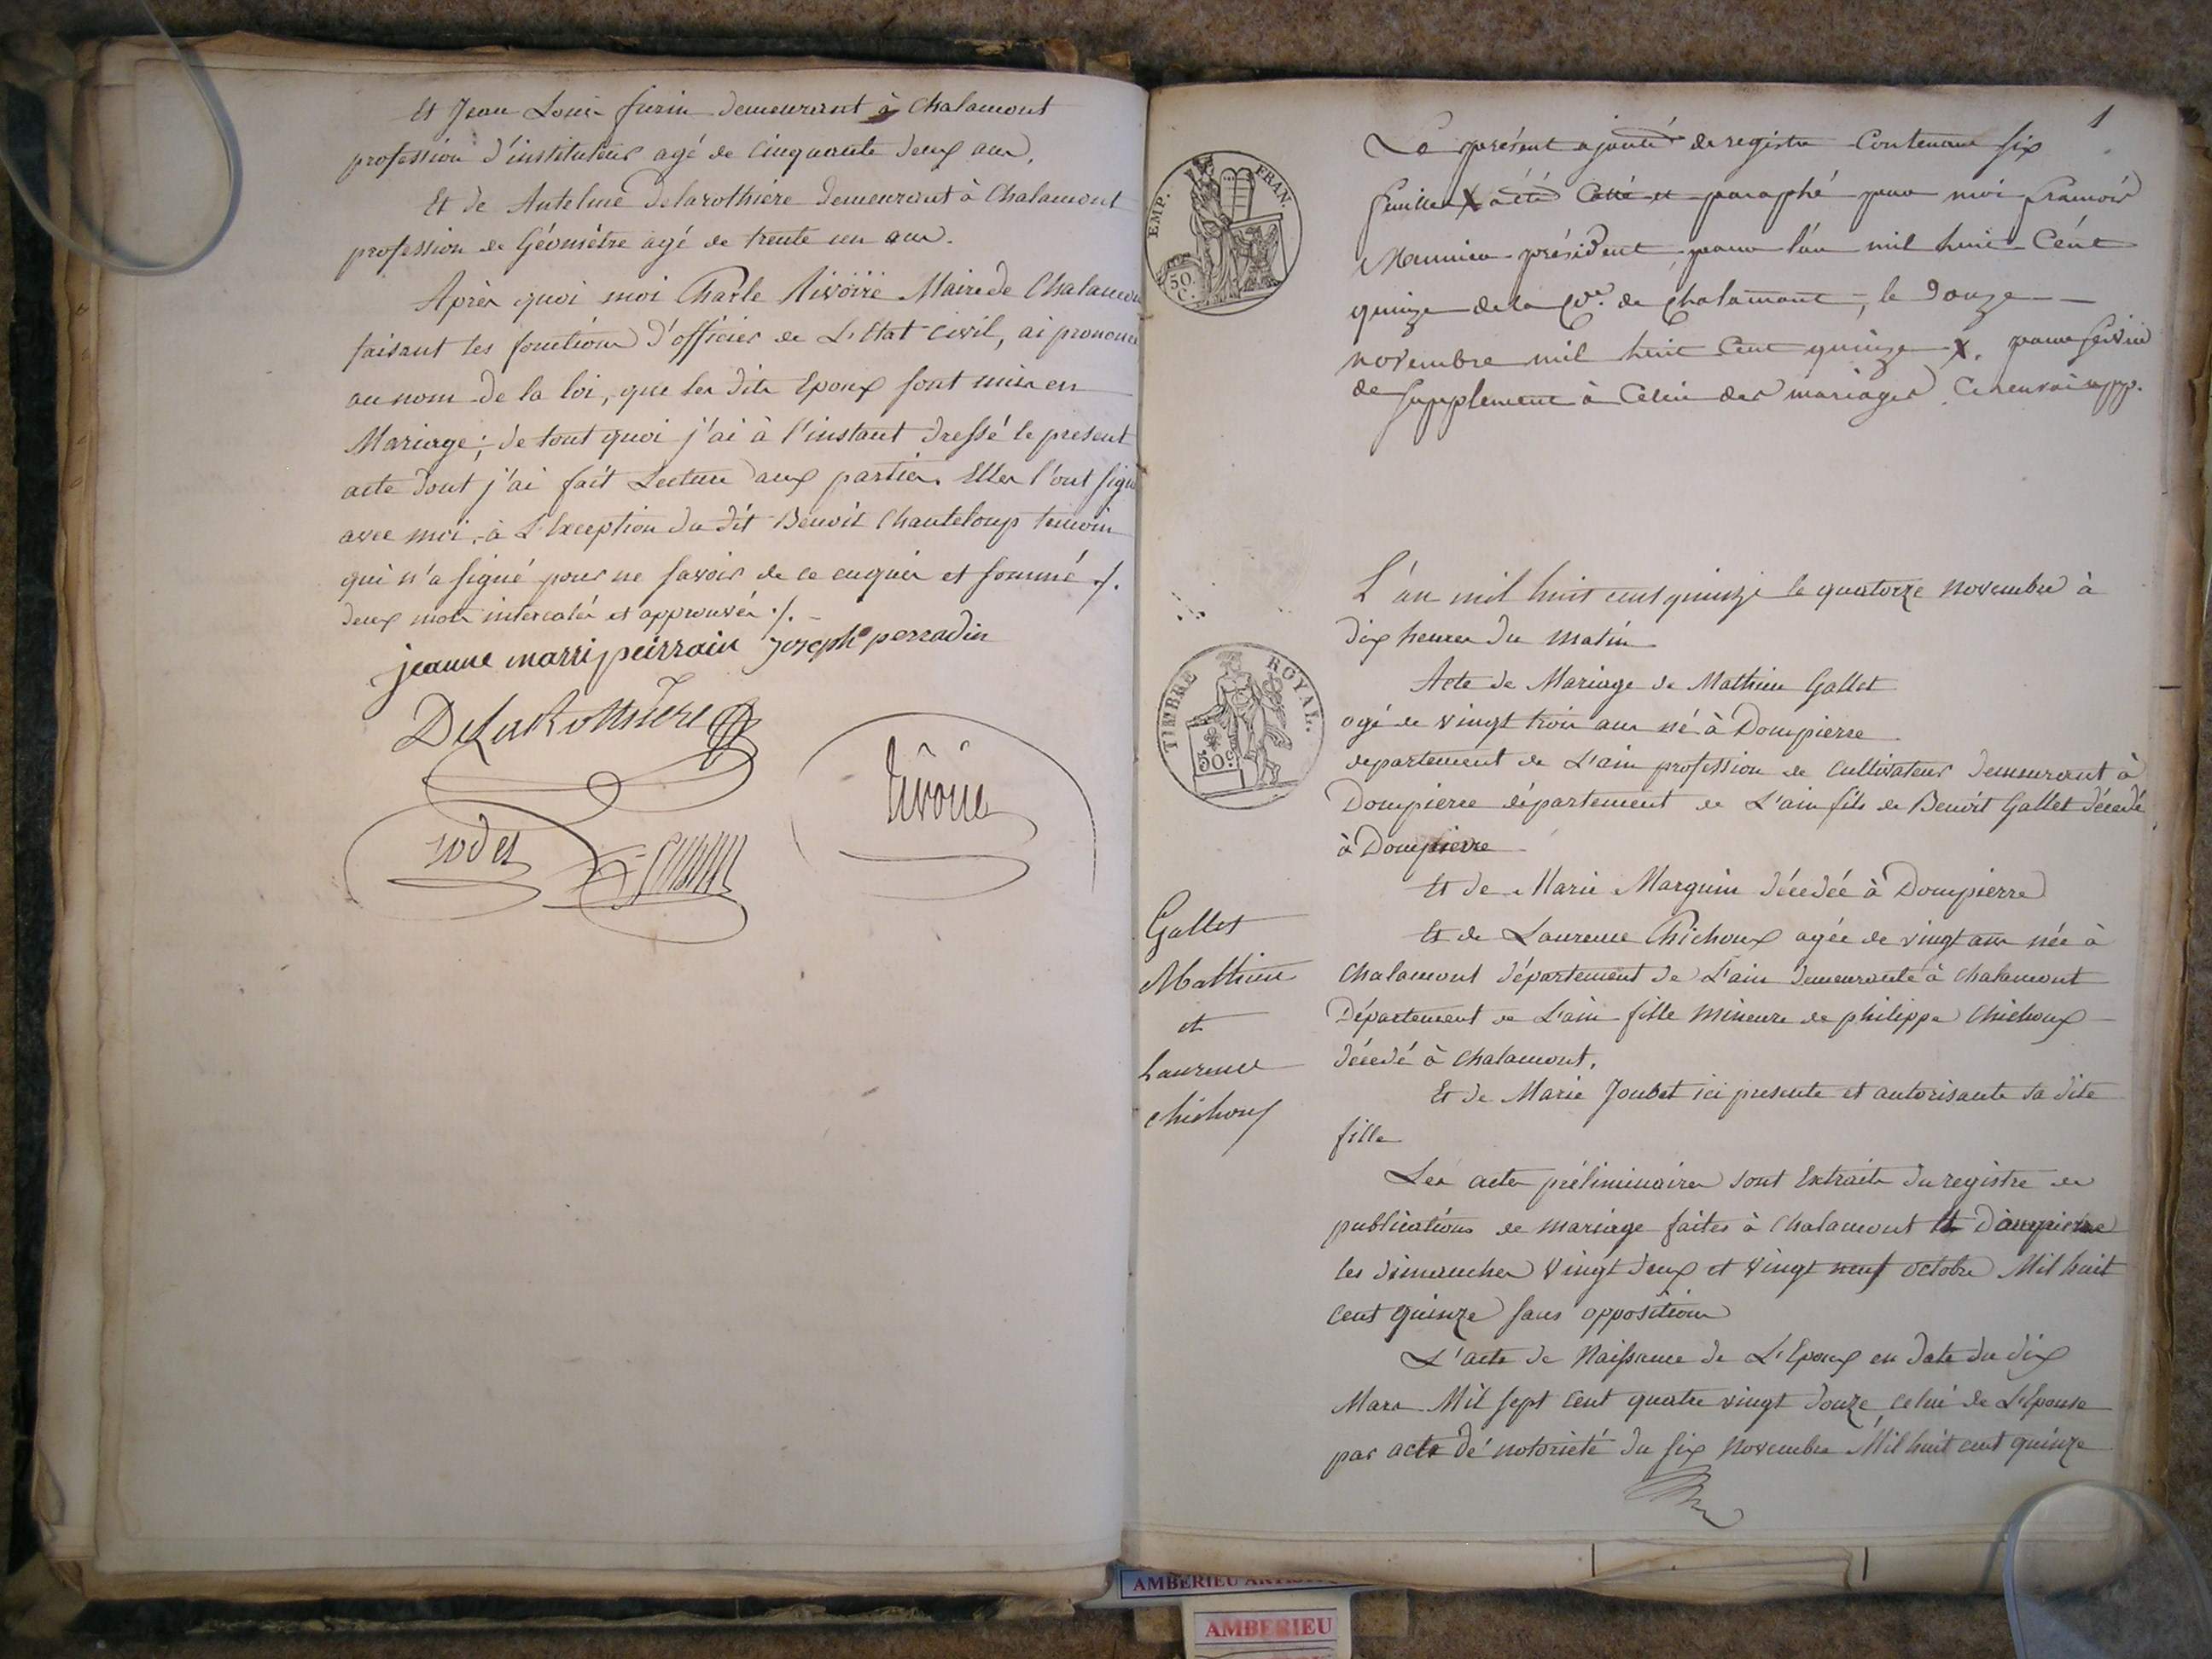 Et Jean Louis furin demeurant à Chalamont
profession d'instituteur agé de Cinquante deux ans,
Et de Antelme Delarothière demeurant à Chalamont
profession de Géomètre agé de trente un ans.
Après quoi moi Charle Rivoire Maire de Chalamon
faisant les fonctions d'officier de L'Etat civil, ai prononcé
au nom de la loi, que les dits Epoux sont unis en
Mariage; de tout quoi j'ai à l'instant dressé le present
acte dont j'ai fait Lecture aux parties. Elles l'ont signé
avec moi, à L'Exception du dit Benoit Chanteloup temoin
qui n'a signé pour ne savoir de ce enquis et sommé ./.
deux mots intercalés et approuvés ./. -
jeanne marri peirrain joseph perradin
DeLaRotthiere
Rivoire
rodet
furin
1
Le présent ajouté de registre Contenant six
feuilles X a été Cotté et paraphé par moi françois
président pour l'an mil huit Cent
quinze de la de Chalamont, le douze
novembre mil huit Cent quinze X. pour servir
de supplement à Celui des mariages Ce renvoi app.
EMP. FRAN.
50 C.
L'an mil huit cent quinze le quatorze novembre à
dix heures du matin
Acte de Mariage de Mathieu Gallet
agé de vingt trois ans né à Dompierre
departement de L'ain profession de cultivateur demeurant à
Dompierre département de L'ain fils de Benoit Gallet décedé
à Dompierre
TIMBRE ROYAL.
50 c.
Et de Marie Marguin décedée à Dompierre
Et de Laurence Chichoux agée de vingt ans née à
Chalamont département de L'ain demeurante à Chalamont
Département de L'ain fille mineure de philippe Chichoux
décedé à Chalamont.
Et de Marie Joubet ici presente et autorisante sa dite
fille
Gallet
Mathieu
et
Laurence
chichoux
Les actes préliminaires sont Extraits du registre de
publications de mariage faites à Chalamont et Dompierre
les dimanches vingt deux et vingt neuf octobre Mil huit
cent quinze sans opposition
L'acte de Naissance de L'Epoux en date du dix
Mars Mil sept cent quatre vingt douze, celui de L'Epouse
par acte de notorieté du six Novembre Mil huit cent quinze
AMBERIEU
AMBERIEU